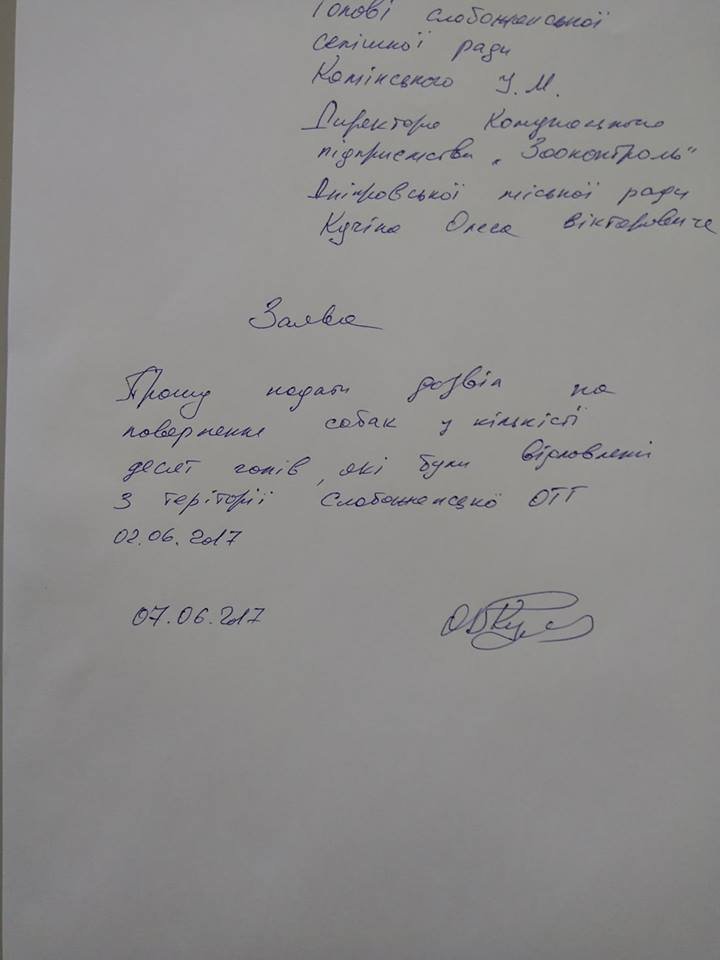 Голові слобожанської
селішної ради
Камінського І. М.
Директора Комунального
підприємства „Зооконтроль"
Дніпровської міської ради
Кучіна Олеса вікторовича
Заява
Прошу надати дозвіл на
повернення собак у кількісті
десят голів, які були відловлені
з теріторії Слобожанської ОТГ
02.06.2017
07.06.2017